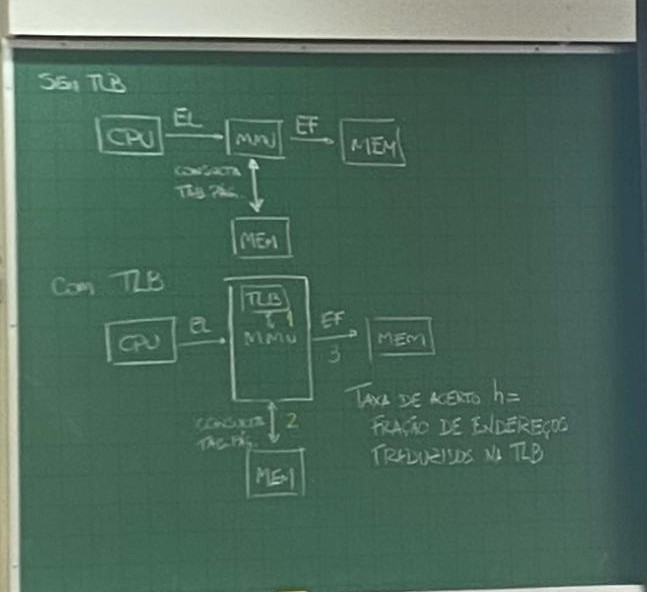 SEM TLB
CPU EL MMU EF MEM
CONSULTA
TAB. PÁG.
MEM
Com TLB
TLB
1
CPU EL MMU EF MEM
3
CONSULTA 2
TAB. PÁG.
MEM
TAXA DE ACERTO h =
FRAÇÃO DE ENDEREÇOS
TRADUZIDOS NA TLB